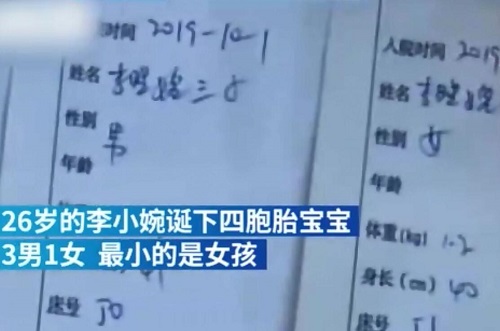 时间 2019-10-1
姓名 李晓婉三子
性别 男
年龄
床号 50
入院时间 2019
姓名 李晓婉
性别 女
年龄
体重(kg) 1.2
身长(cm) 40
床号 51
26岁的李小婉诞下四胞胎宝宝
3男1女 最小的是女孩